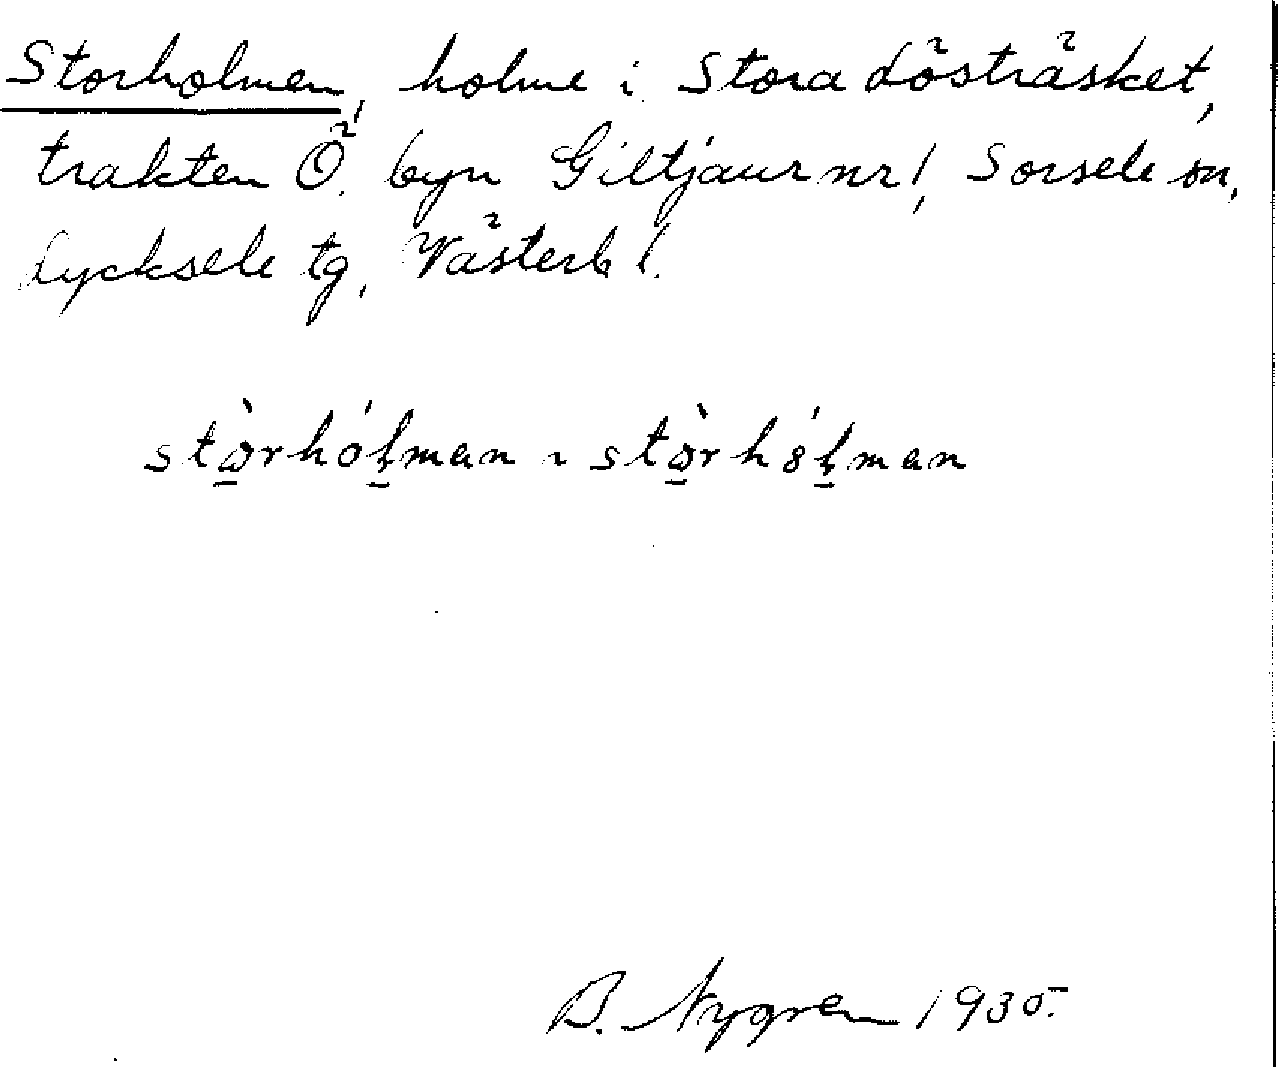 Storholmen, holme i Stora Lösträsket,
trakten Ö. byn Giltjaur nr 1, Sorsele sn,
Lycksele tg, Västerb l.
stòrhólman ~ stòrhólman
B. Nygren 1935.